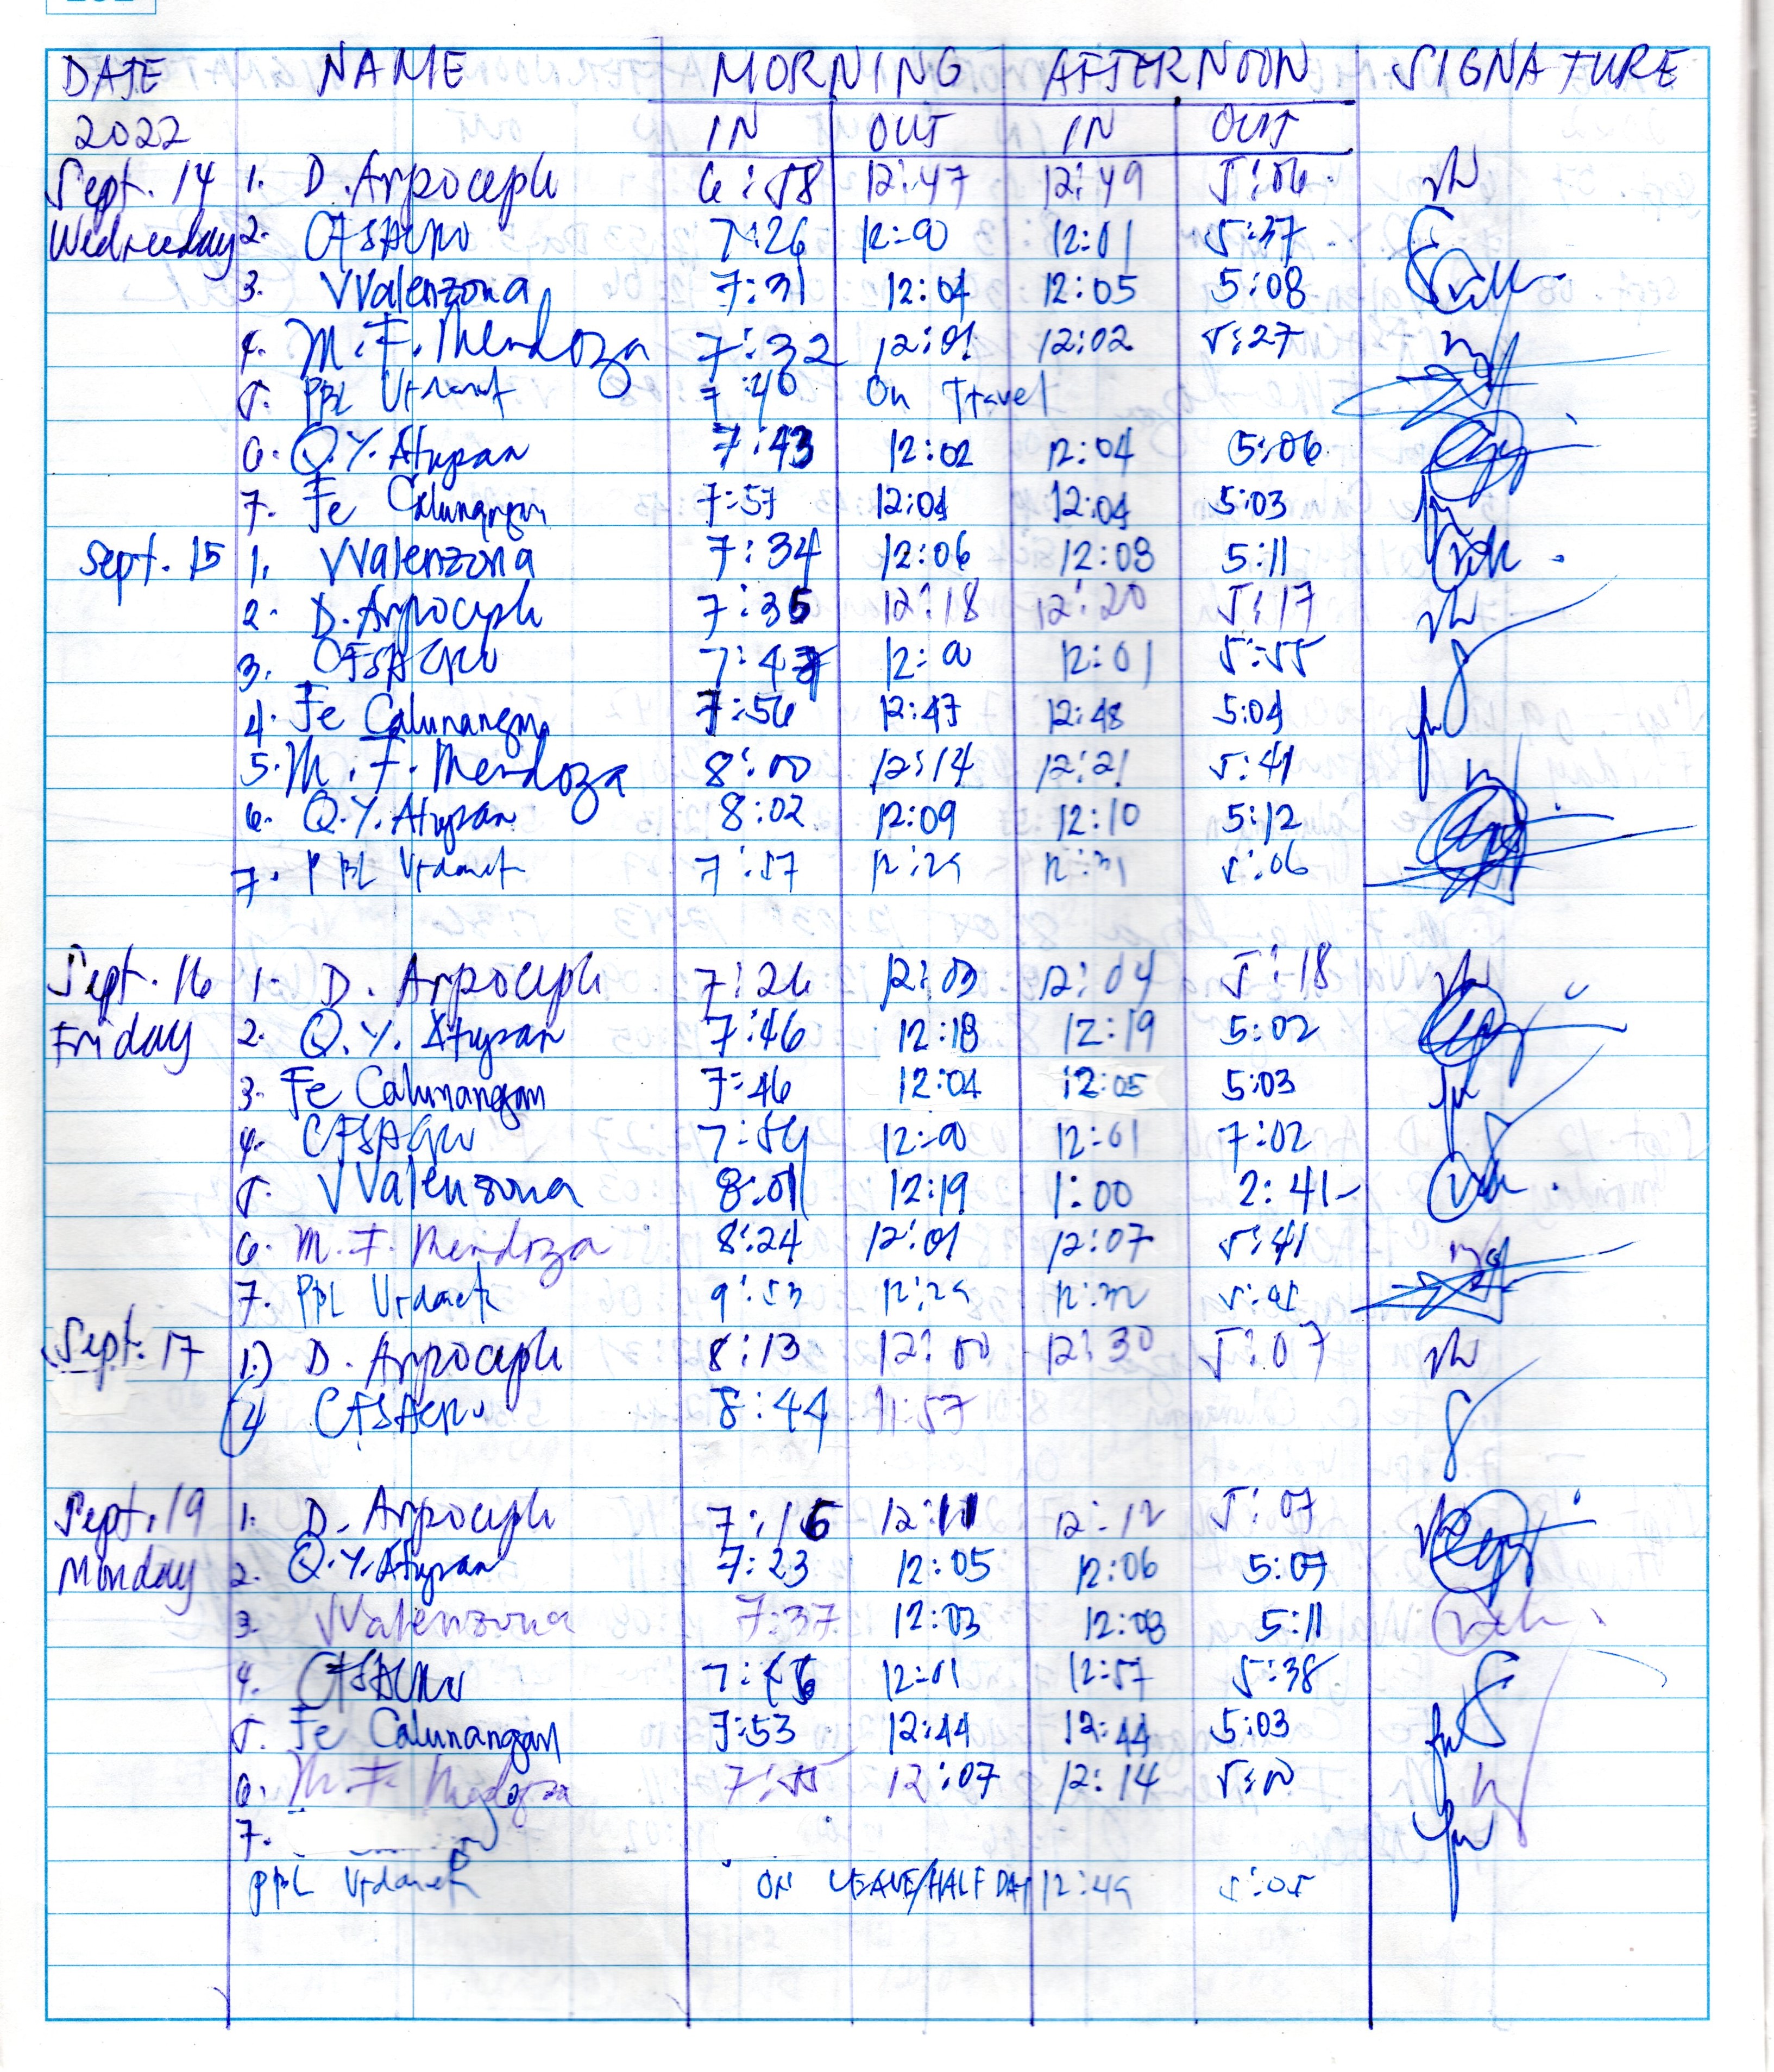 DATE NAME MORNING AFTERNOON SIGNATURE
2022 IN OUT IN OUT
Sept. 14 1. D. Arpoceph 6:58 12:47 12:49 5:06
Wednesday 2. 7:26 12:00 12:01 5:37
3. VValenzona 7:31 12:04 12:05 5:08
4. M. F. Mendoza 7:32 12:01 12:02 5:27
5. PBL Urdanet 7:40 On Travel
6. Q.Y. Atupan 7:43 12:02 12:04 5:06
7. Fe Calunangan 7:57 12:04 12:04 5:03
Sept. 15 1. VValenzona 7:34 12:06 12:08 5:11
2. D. Arpoceph 7:35 12:18 12:20 5:17
3. 12:00 12:01 5:55
4. Fe Calunangan 7:56 12:47 12:48 5:04
5. M. F. Mendoza 8:00 12:14 12:21 5:41
6. Q.Y. Atupan 8:02 12:09 12:10 5:12
7. PBL Urdanet 7:57 12:29 12:31 5:06
Sept. 16 1. D. Arpoceph 7:26 12:03 12:04 5:18
Friday 2. Q.Y. Atupan 7:46 12:18 12:19 5:02
3. Fe Calunangan 7:46 12:04 12:05 5:03
4. 7:54 12:00 12:01 7:02
5. VValenzona 8:01 12:19 1:00 2:41
6. M. F. Mendoza 8:24 12:01 12:07 5:41
7. PBL Urdanet 9:53 12:29 12:32
Sept. 17 1.) D. Arpoceph 8:13 12:00 12:30 5:07
8:44 11:57
Sept. 19 1. D. Arpoceph 7:16 12:11 12:12 5:07
Monday 2. Q.Y. Atupan 7:23 12:05 12:06 5:07
3. VValenzona 7:37 12:03 12:08 5:11
4. 12:01 12:57 5:38
5. Fe Calunangan 7:53 12:44 12:44 5:03
6. M. F. Mendoza 7:55 12:07 12:14
7.
PBL Urdanet ON LEAVE/HALF DAY 12:49 5:05